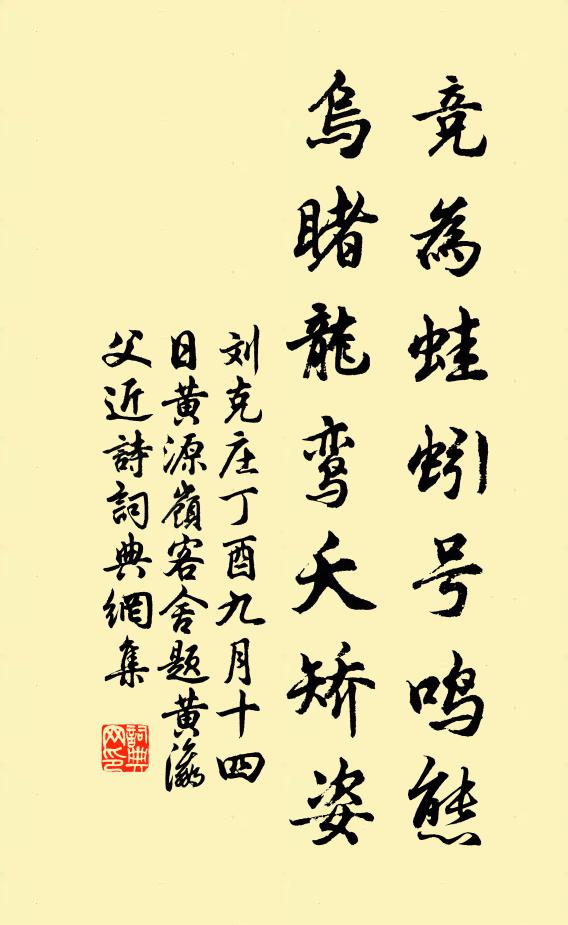 竞為蛙蚓号鸣態
烏睹龍鸾夭矫姿
刘克庄丁酉九月十四
日黄源嶺客舍题黄瀛
父近詩詞典網集
詞典
网印